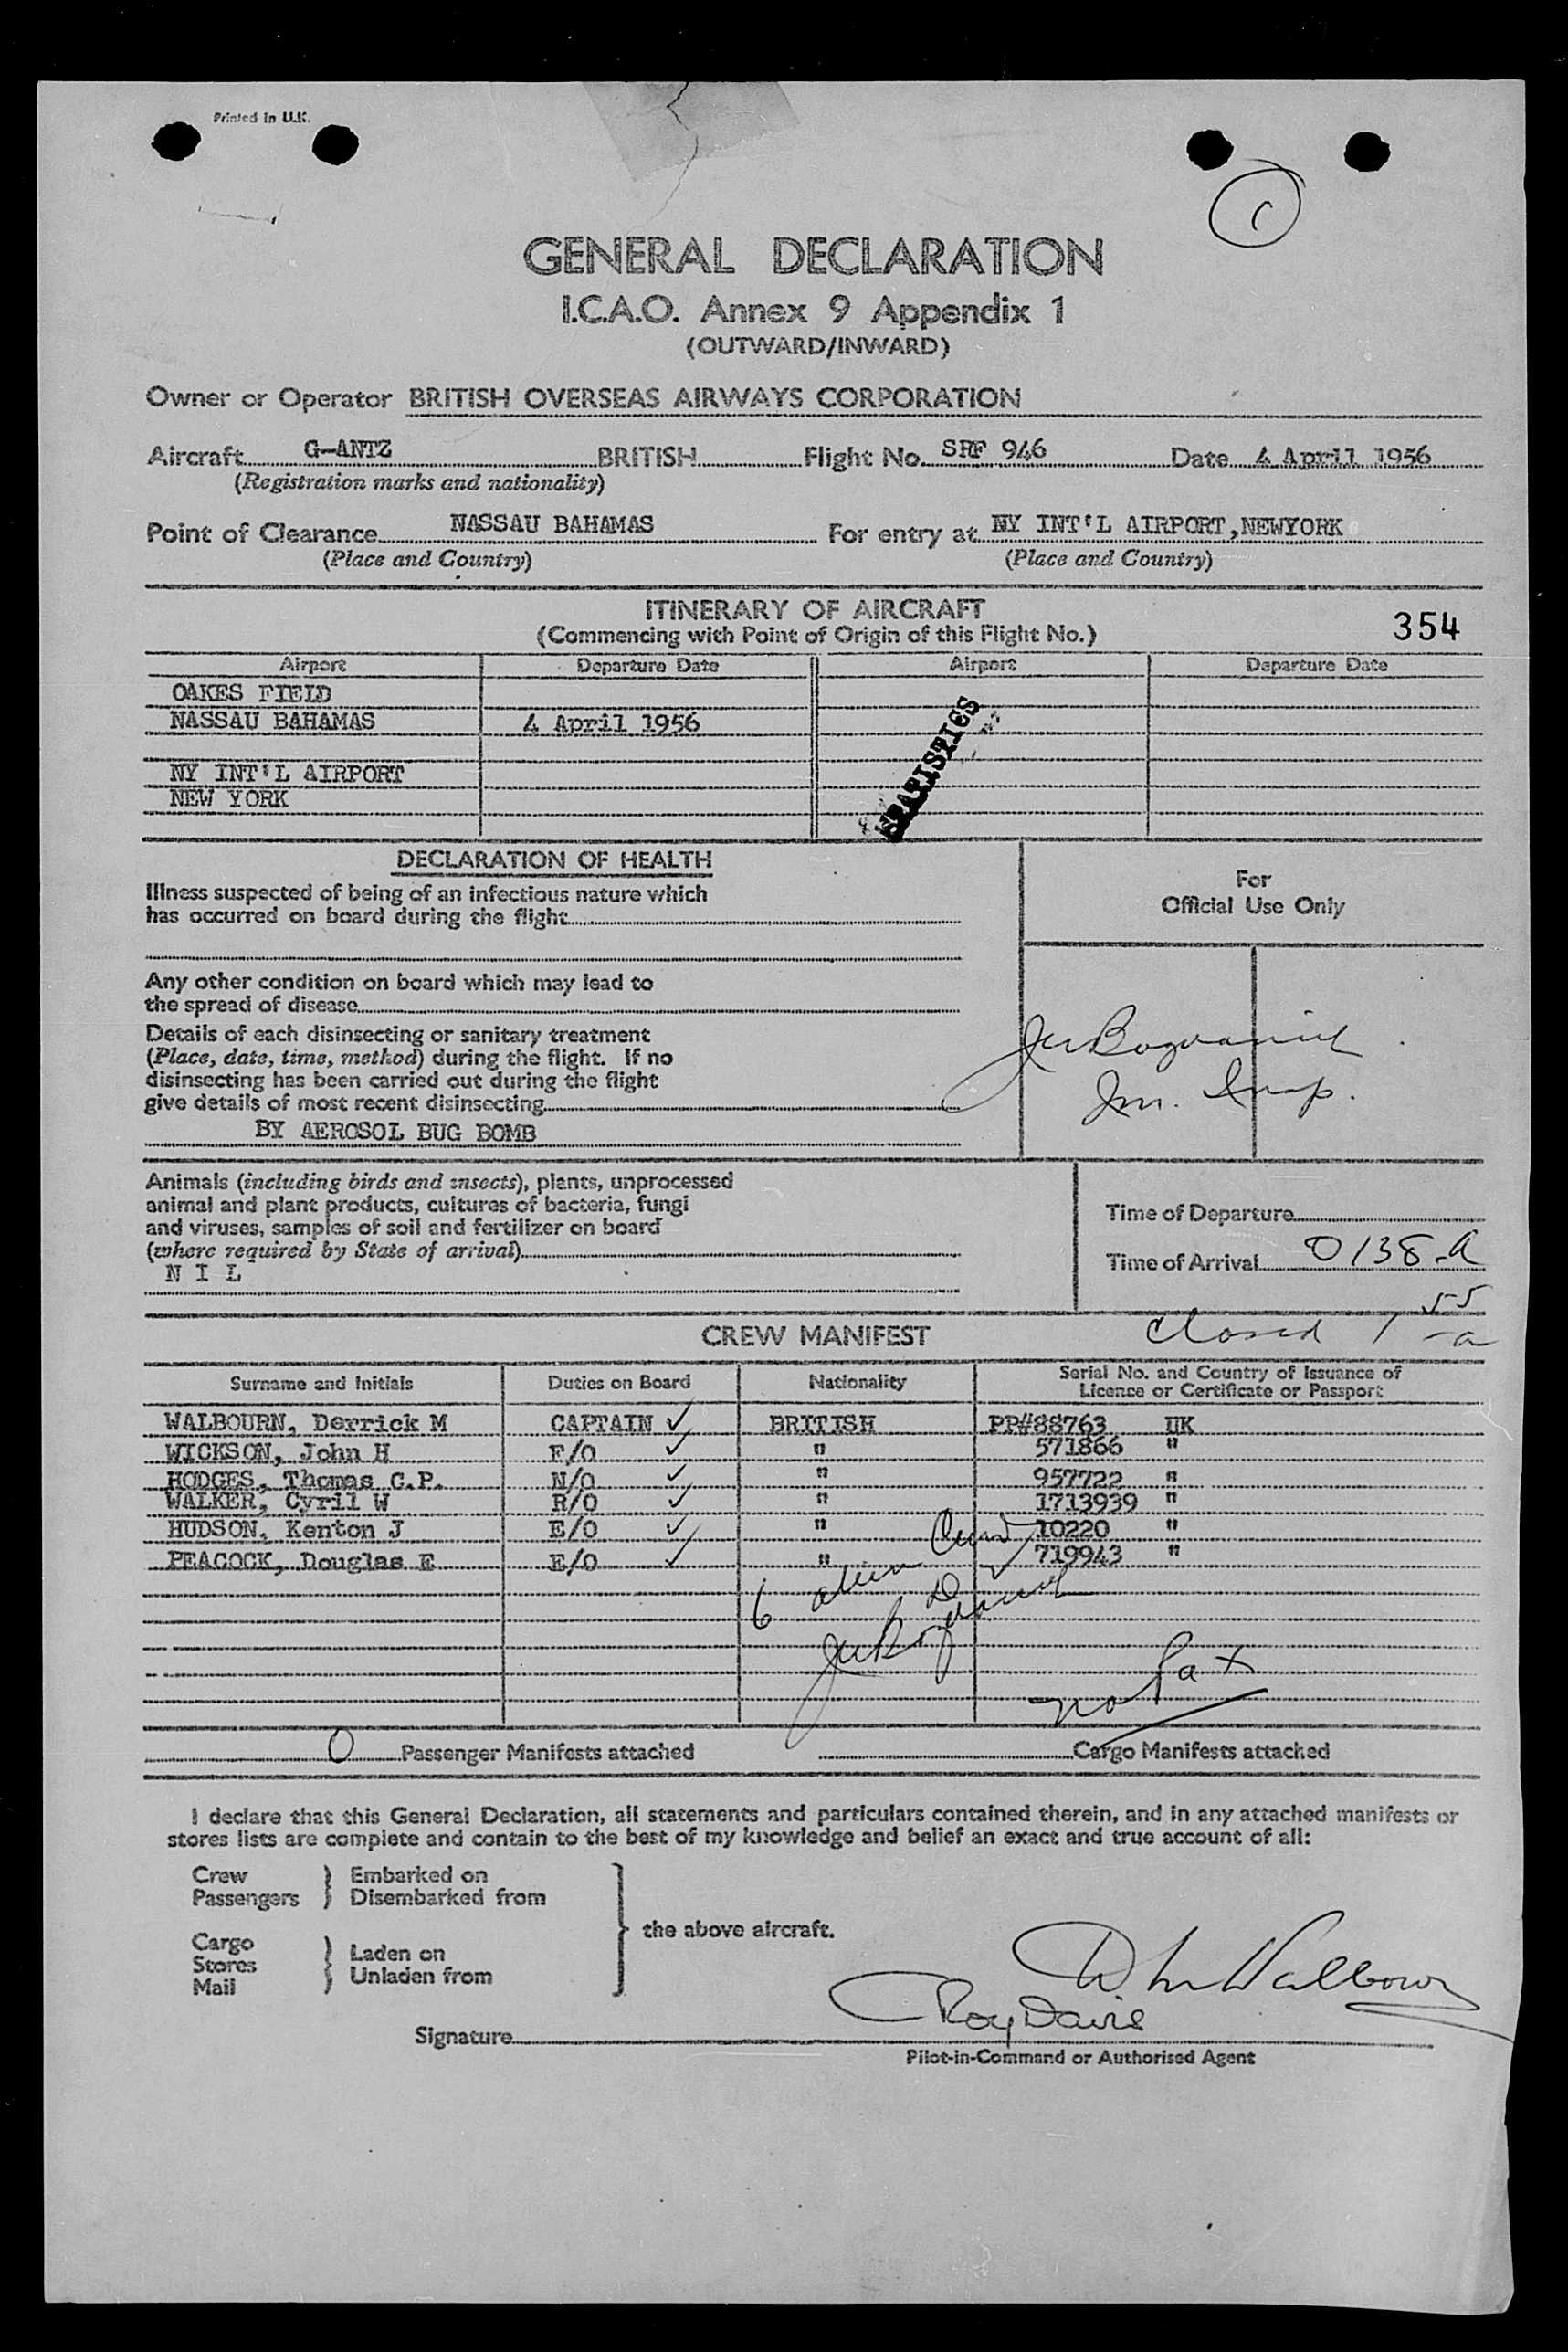 Printed in U.K.
GENERAL DECLARATION
I.C.A.O. Annex 9 Appendix 1
(OUTWARD/INWARD)
Owner or Operator BRITISH OVERSEAS AIRWAYS CORPORATION
Aircraft G-ANTZ BRITISH Flight No. SRF 946 Date 4 April 1956
(Registration marks and nationality)
Point of Clearance NASSAU BAHAMAS For entry at NY INT'L AIRPORT,NEWYORK
(Place and Country) (Place and Country)
ITINERARY OF AIRCRAFT
(Commencing with Point of Origin of this Flight No.) 354
Airport Departure Date Airport Departure Date
OAKES FIELD
NASSAU BAHAMAS 4 April 1956
STATISTICS
NY INT'L AIRPORT
NEW YORK
DECLARATION OF HEALTH
Illness suspected of being of an infectious nature which
has occurred on board during the flight
For
Official Use Only
Any other condition on board which may lead to
the spread of disease
Details of each disinsecting or sanitary treatment
(Place, date, time, method) during the flight. If no
disinsecting has been carried out during the flight
give details of most recent disinsecting
BY AEROSOL BUG BOMB
Im. Insp.
Animals (including birds and insects), plants, unprocessed
animal and plant products, cultures of bacteria, fungi
and viruses, samples of soil and fertilizer on board
(where required by State of arrival)
N I L
Time of Departure
Time of Arrival 0138-a
closed 1 55 -a
CREW MANIFEST
Surname and Initials Duties on Board Nationality Serial No. and Country of Issuance of
Licence or Certificate or Passport
WALBOURN, Derrick M CAPTAIN ✓ BRITISH PP#88763 UK
WICKSON, John H F/O ✓ " 571866 "
HODGES, Thomas C.P. N/O ✓ " 957722 "
WALKER, Cyril W R/O ✓ " 1713939 "
HUDSON, Kenton J E/O ✓ " 10220 "
PEACOCK, Douglas E E/O ✓ " 719943 "
6 alien Crew
no Pax
0 Passenger Manifests attached Cargo Manifests attached
I declare that this General Declaration, all statements and particulars contained therein, and in any attached manifests or
stores lists are complete and contain to the best of my knowledge and belief an exact and true account of all:
Crew } Embarked on
Passengers } Disembarked from
the above aircraft.
Cargo
Stores } Laden on
Mail } Unladen from
D M Walbourn
Roy Davis
Signature
Pilot-in-Command or Authorised Agent